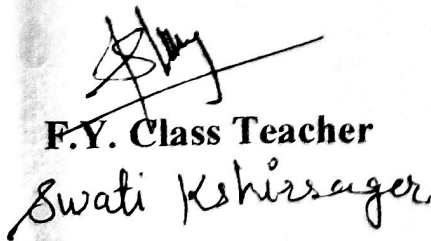 F.Y. Class Teacher
Swati Kshirsager